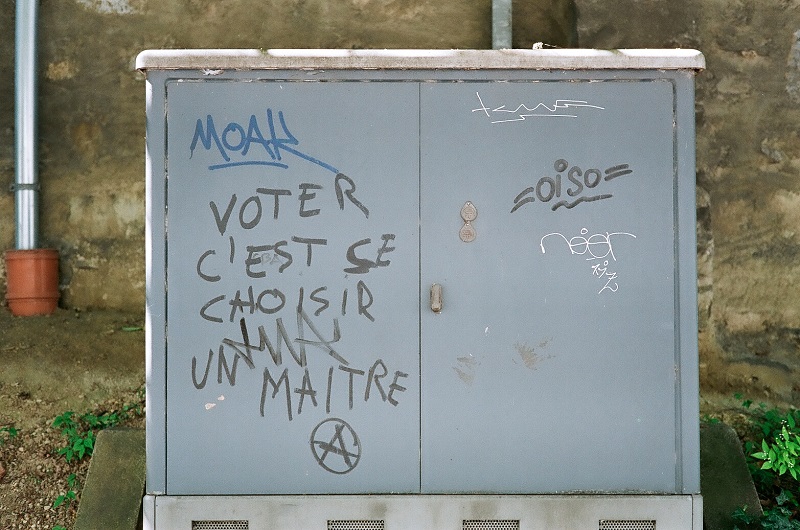 MOAK
VOTER
C'EST SE
CHOISIR
UN MAITRE
=OISO=